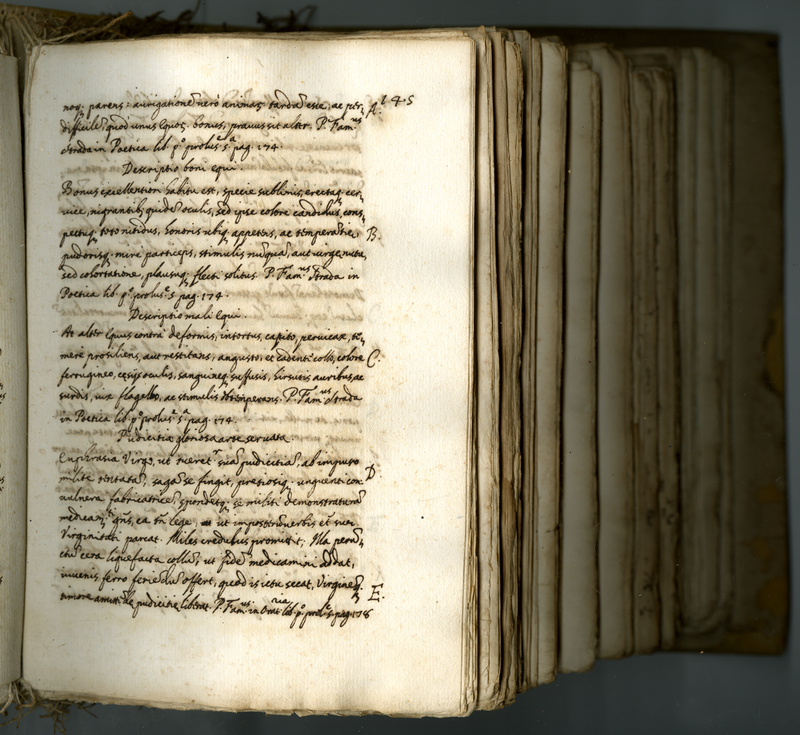 noq. parens: aurigatione᷉ vero animaq. tarda᷉ esse, ac per- A. 145
difficile᷉, quod unus Equos. bonus, pravus sit alter. P. Fam.us
Strada in Poetica lib. p.º prolus.e 5.a pag. 174.
Descriptio boni equi.
Bonus excellentiori habitu est, specie sublimis, erectaq. cer-
vice, nigrantib. quide᷉ oculis, sed ipse colore candidus, cons-
pectuq. toto nitidus, honoris ubiq. appetens, ac temperantie, B.
pudorisq. mire particeps, stimulis nu᷉qua᷉, aut virge nutu,
sed cohortatione, plausuq. flecti solitus. P. Fam.us Strada in
Poetica lib. p.º prolus.e 5 pag. 174.
Descriptio mali Equi.
At alter Equus contra deformis, intortus, capito, pervicax, te-
mere prosiliens, aut restitans, angusto, et cadenti collo, colore C.
ferrugineo, cesijs oculis, sanguineq. suffusis, hirsutis auribus, ac
surdis, vix flagello, ac stimulis obtemperans. P. Fam.us Strada
in Poetica lib. p.º prolus.e 5.a pag. 174.
Pudicitia gloriosa arte servata.
Euphrasia Virgo, ut tueret.r sua᷉ pudicitia᷉, ab impuro
milite tentata᷉, saga᷉ se fingit, pretiosiq. unguenti con- D.
vulnera fabricatrice᷉, spondetq. se militi demonstratura᷉
medica᷉, ea tn᷉ lege, ut ut impostri verbis et sue
Virginitati parcat. Miles credulus promisit; Illa pera-
ctu᷉ cera liquefacta collu᷉, ut fide᷉ medicamini addat,
iuveni, ferro feriedu᷉ offert, quod is ictu secat, Virgineq.
timore amittede pudicitie liberat. P. Fam.us in Orat.ria lib. p.º prol.e 5. pag. 178 E.